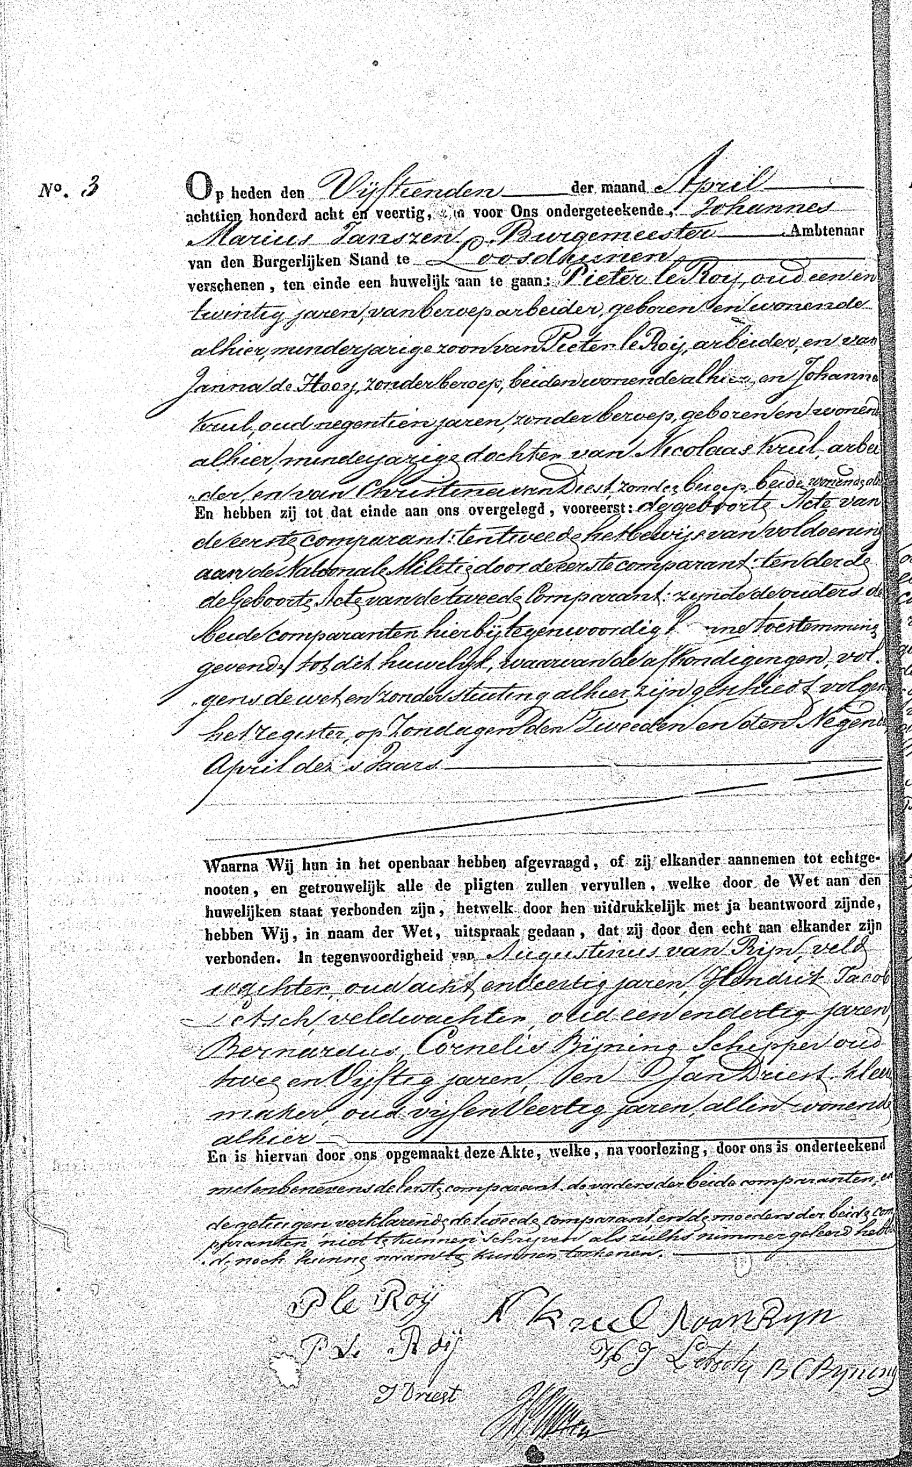 No. 3
Op heden den Vijftienden der maand April
achttien honderd acht en veertig, zijn voor Ons ondergeteekende, Johannes
Marius Janszen, Burgemeester Ambtenaar
van den Burgerlijken Stand te Loosduinen
verschenen, ten einde een huwelijk aan te gaan: Pieter le Roij, oud een en
twintig jaren, van beroep arbeider, geboren en wonende
alhier, minderjarige zoon van Pieter le Roij, arbeider, en van
Janna de Hooy, zonder beroep, beiden wonende alhier, en Johanna
Krul, oud negentien jaren, zonder beroep, geboren en wonend
alhier, minderjarige dochter van Nicolaas Krul, arbei
der, en van Christina van Diest, zonder beroep, beide wonende alh
En hebben zij tot dat einde aan ons overgelegd, vooreerst: de geboorte Acte van
de eerste comparant: ten tweede het bewijs van voldoening
aan de Nationale Militie door de eerste comparant: ten derde
de Geboorte Acte van de tweede Comparant: zijnde de ouders de
beide comparanten hierbij tegenwoordig toestemming
gevende tot dit huwelijk, waarvan de afkondigingen vol-
gens de wet en zonder stuiting alhier zijn geschied volgens
het register, op Zondagen den Tweeden en den Negend
April dezes Jaars
Waarna Wij hun in het openbaar hebben afgevraagd, of zij elkander aannemen tot echtge-
nooten, en getrouwelijk alle de pligten zullen vervullen, welke door de Wet aan den
huwelijken staat verbonden zijn, hetwelk door hen uitdrukkelijk met ja beantwoord zijnde,
hebben Wij, in naam der Wet, uitspraak gedaan, dat zij door den echt aan elkander zijn
verbonden. In tegenwoordigheid van Augustinus van Rijn, veld
wachter, oud acht en veertig jaren, Hendrik Jacob
Lötsch, veldwachter, oud een en dertig jaren,
Bernardus Cornelis Bijning Schipper oud
twee en Vijftig jaren, en Jan Driest, kleer
maker, oud vijf en Veertig jaren, allen wonende
alhier
En is hiervan door ons opgemaakt deze Akte, welke, na voorlezing, door ons is onderteekend
met en benevens de eerste comparant, de vaders der beide comparanten, en
de getuigen verklarende de tweede comparant en de moeders der beide com
paranten niet te kunnen schrijven als zulks nimmer geleerd hebbe
de, noch hunne naam te kunnen teekenen.
P le Roij
N Krul
A van Ryn
P. le Roij
H J Lötsch
B C Byning
J Driest